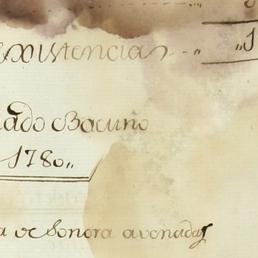 existencias
ado Bacuño
1780
a de Sonora avenidas